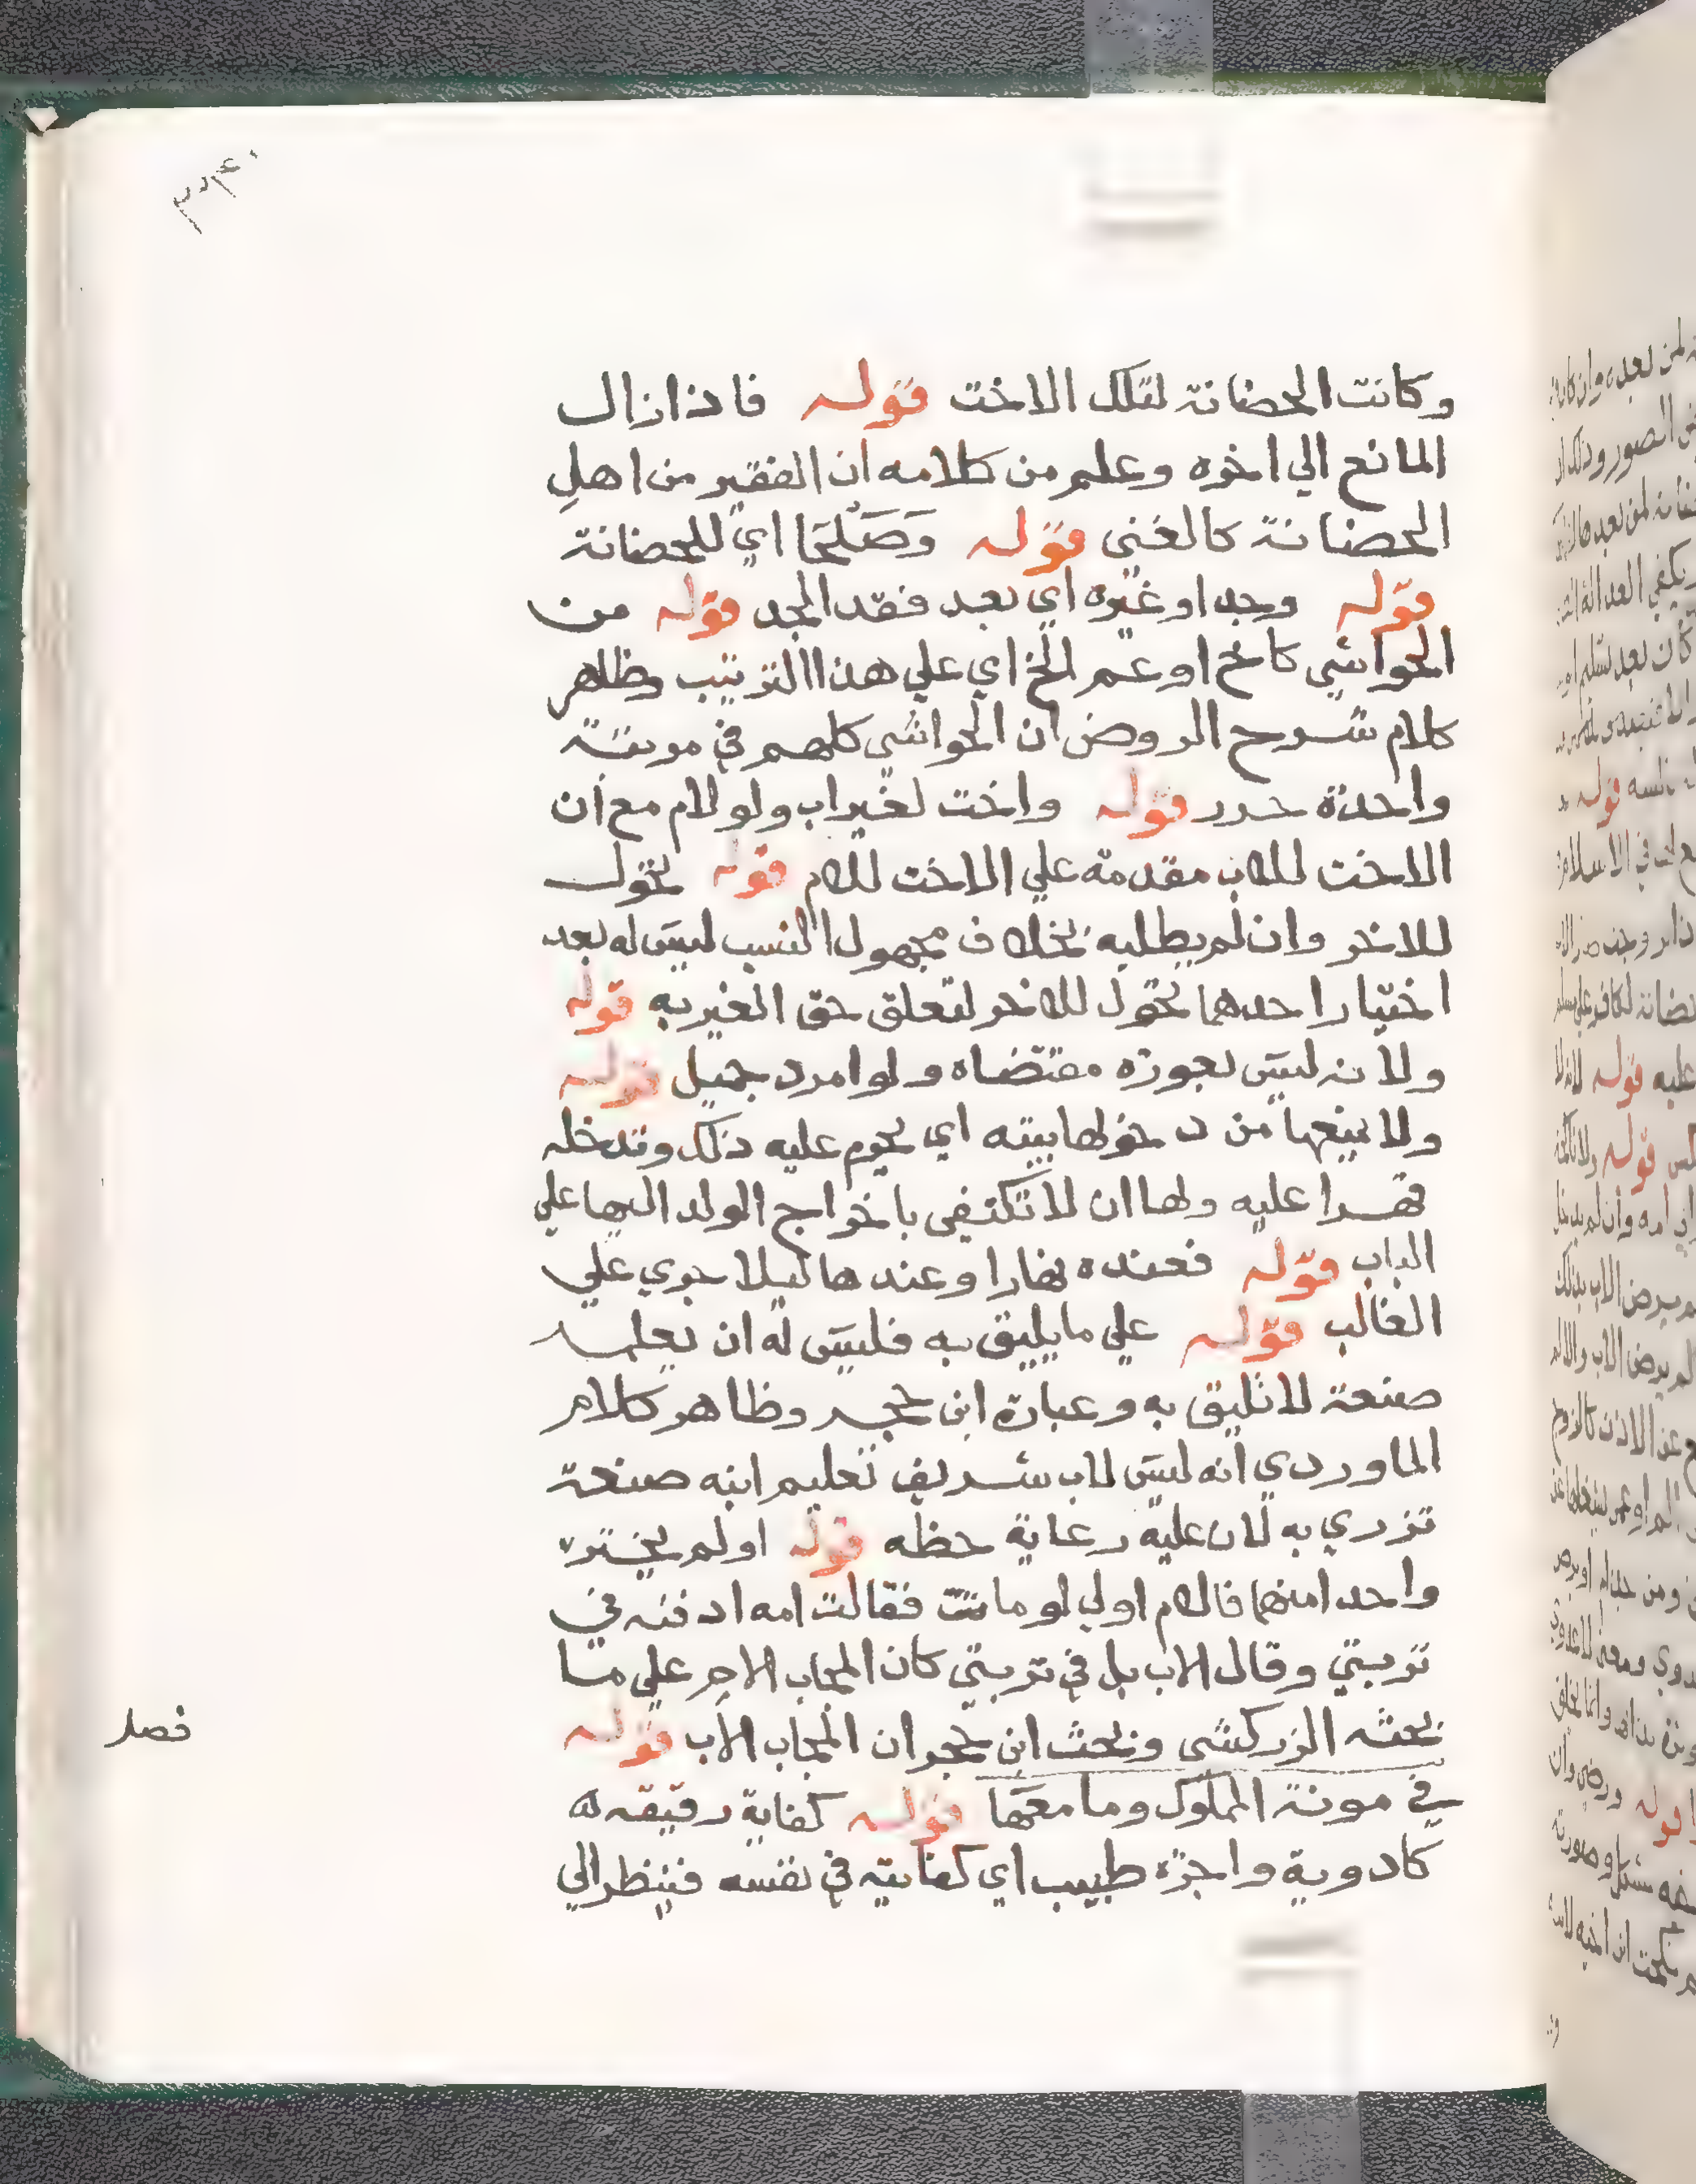 وكانت الحضانة لتلك الاخت قوله فاذا زال
المانع الي اخره وعلم من كلامه ان الفقير من اهل
الحضانة كالغني قوله وصلحا اي للحضانة
قوله وجد او غيره اي بعد فقد الجد قوله من
الحواشي كاخ او عم الخ اي علي هذا الترتيب وظاهر
كلام شرح الروض ان الحواشي كلهم في مرتبة
واحدة حرر قوله واخت لغير اب ولو لام مع ان
الاخت للاب مقدمة علي الاخت للام قوله تحول
للاخر وان لم يطلبه بخلاف مجهول النسب ليس له بعد
اختيار احدهما تحول للاخر لتعلق حق الغير به قوله
ولانه ليس بعورة مقتضاه ولو امرد جميل قوله
ولا يمنعها من دخولها بيته اي يحرم عليه ذلك وتدخله
قهرا عليه ولها ان لا تكتفي باخراج الولد اليها علي
الباب قوله فعنده نهارا وعندها ليلا جري علي
الغالب قوله علي ما يليق به فليس له ان يعلمه
صنعة لا تليق به وعبارة ابن حجر وظاهر كلام
الماوردي انه ليس لاب شريف تعليم ابنه صنعة
تزري به لان عليه رعاية حظه قوله او لم يختر
واحدا منهما فالام اولي لو مات فقالت امه ادفنه في
تربتي وقال الاب بل في تربتي كان المجاب الام علي ما
بحثه الزركشي وبحث ابن حجر ان المجاب الاب قوله
فصل
في مونة المملوك وما معها قوله كفاية رقيقه له
كادوية واجرة طبيب اي كفايته في نفسه فينظر الي